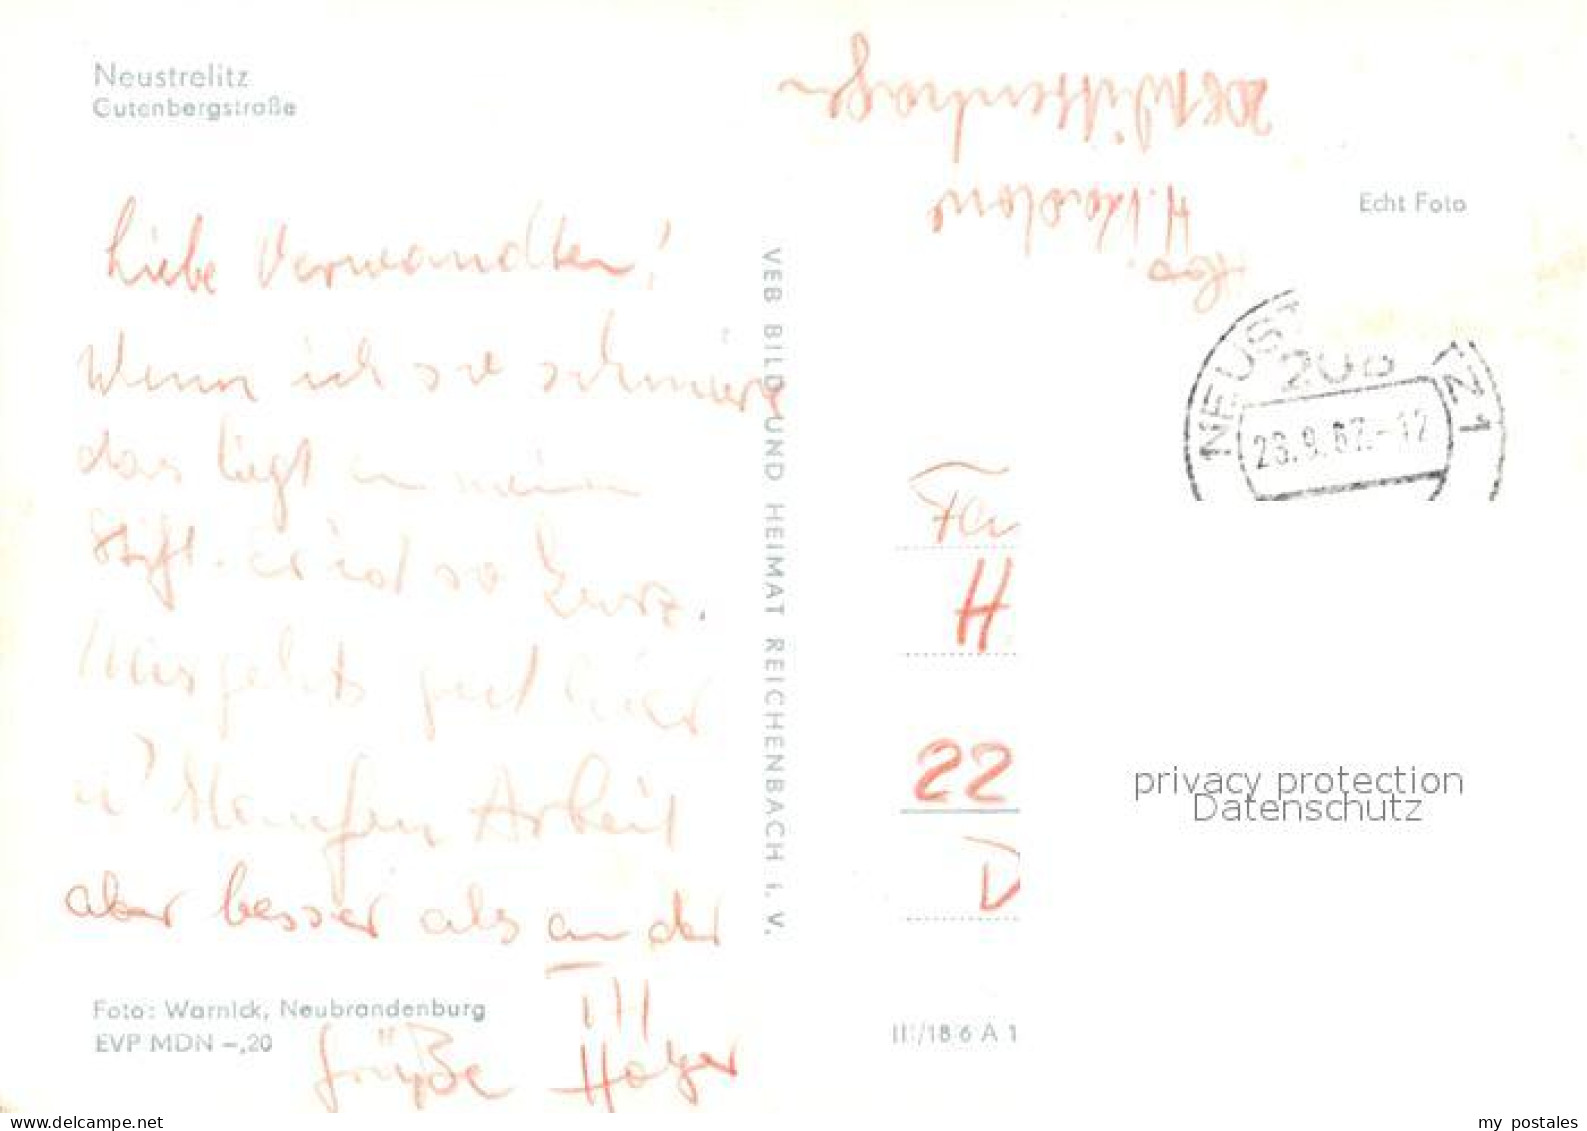 Neustrelitz
Gutenbergstraße
Liebe Verwandten!
Wenn ich so schmiere
das liegt an meinem
Stift. er ist so kurz.
Mir gehts gut hier
u' Haufen Arbeit
aber besser als an der
Grüße Holger
Foto: Warnick, Neubrandenburg
EVP MDN -,20
VEB BILD UND HEIMAT REICHENBACH i. V.
Echt Foto
NEUST Z 1
208
23.9.67.-12
Fa
H
22
D
privacy protection
Datenschutz
III/18 6 A 1
delcampe.net
my_postales